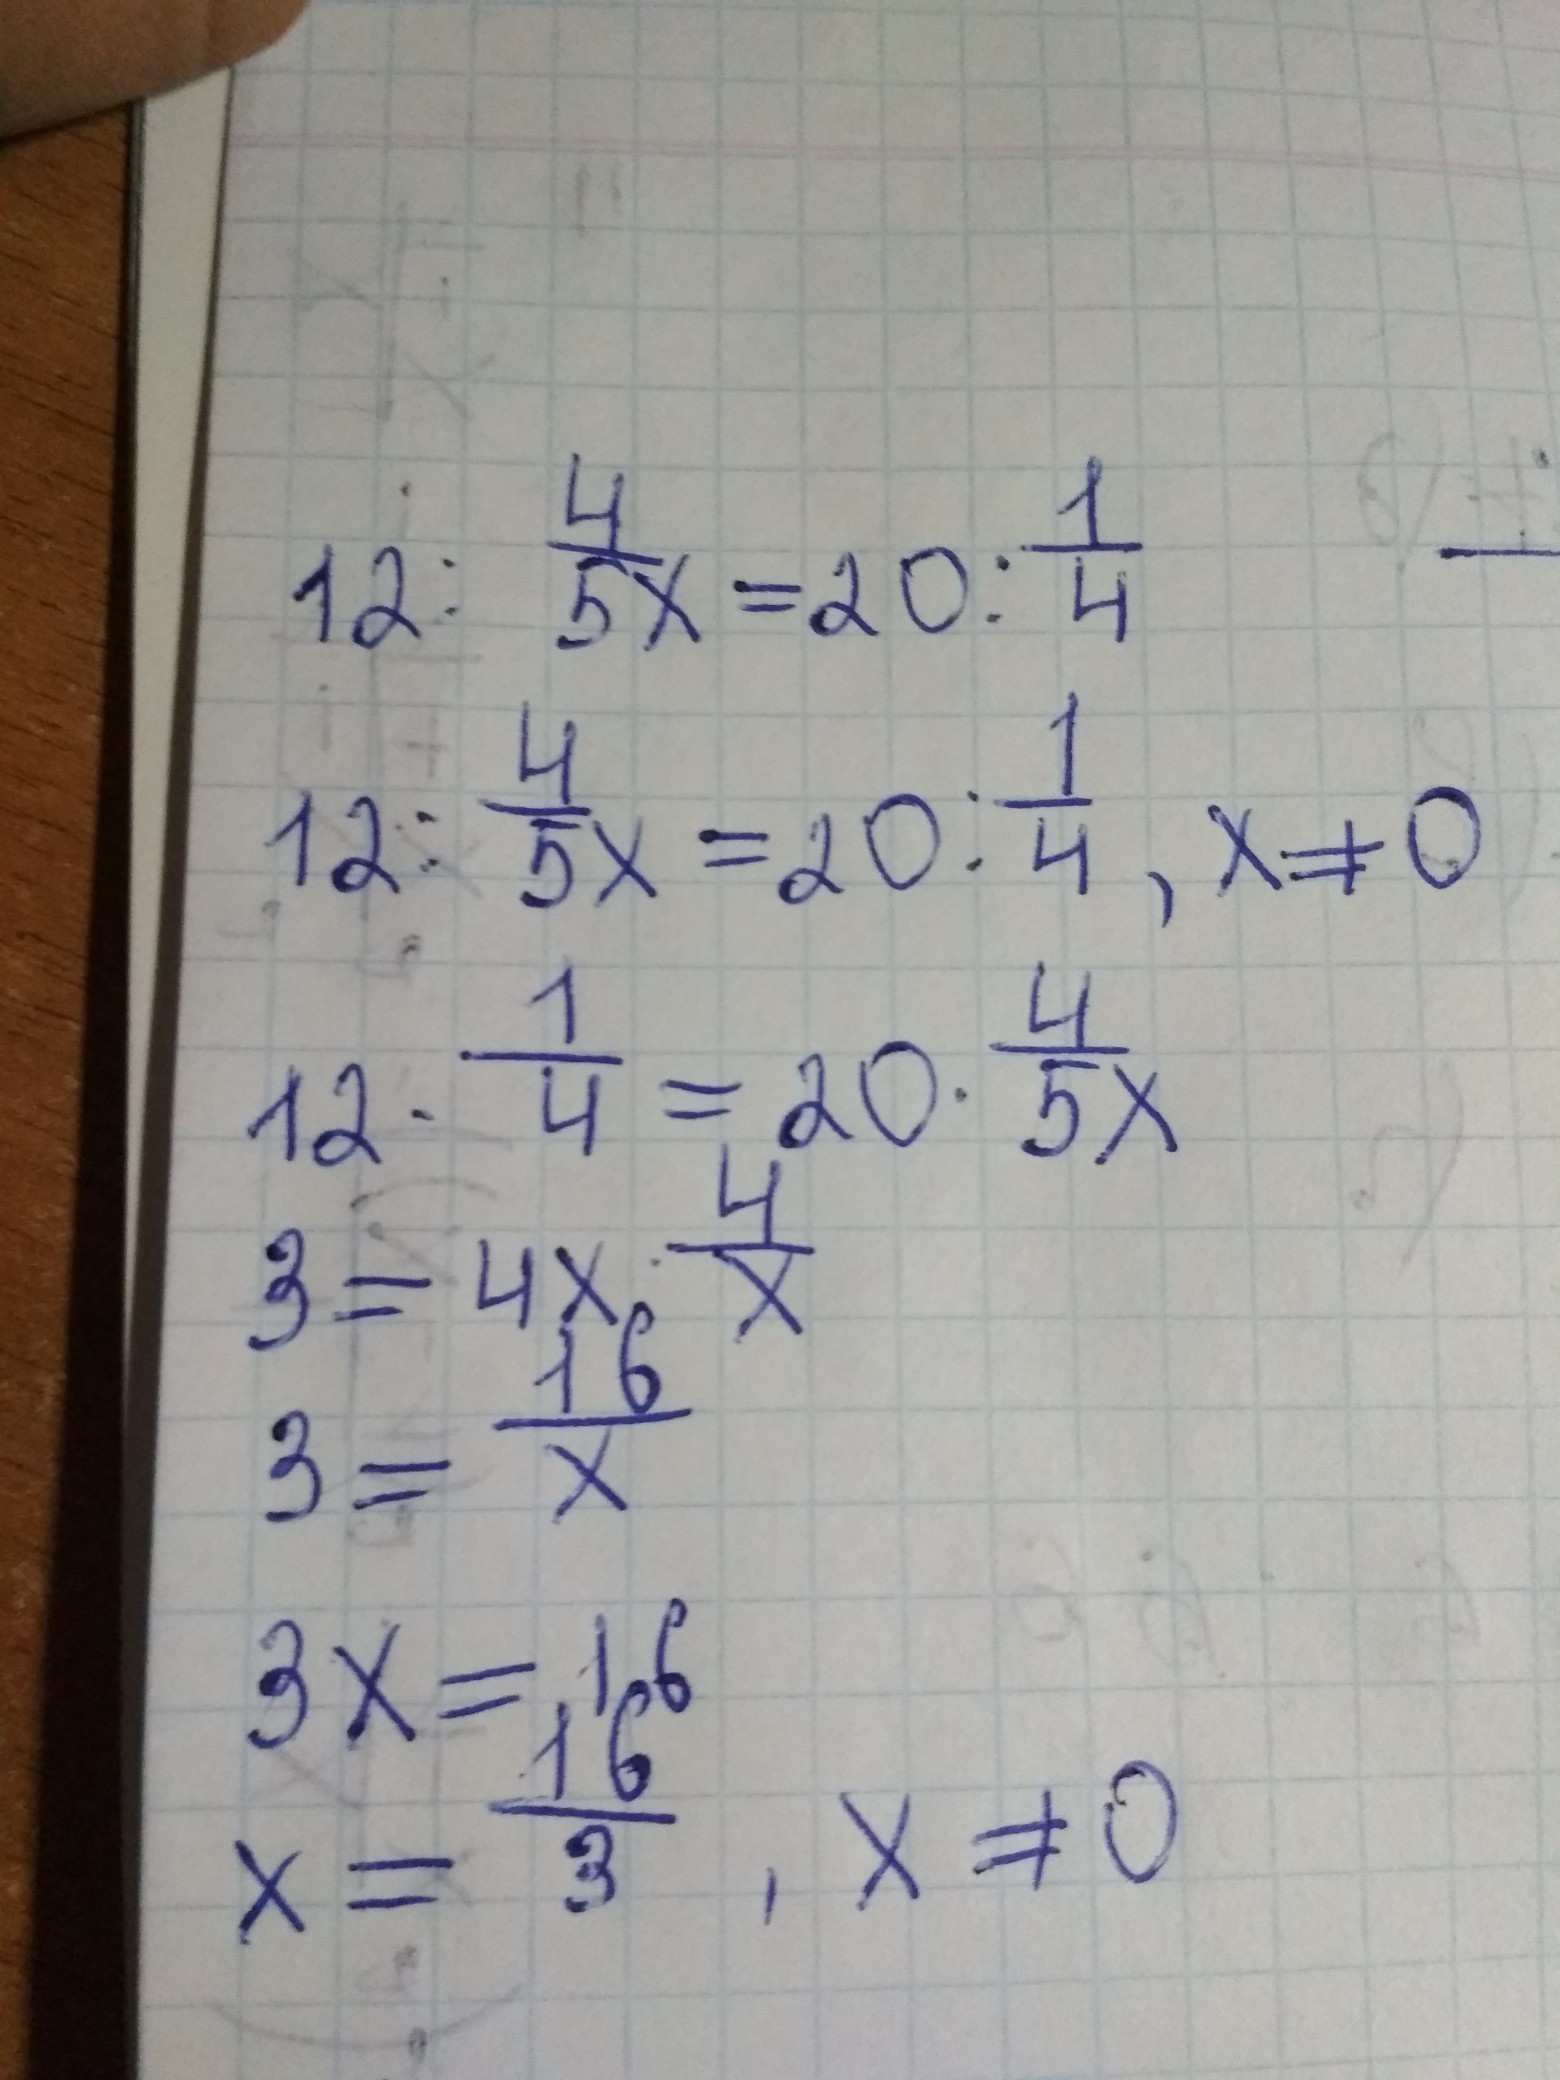 12 : 4/5x = 20 : 1/4
12 : 4/5x = 20 : 1/4 , x ≠ 0
12 · 1/4 = 20 · 4/5x
3 = 4x · 4/x
3 = 16/x
3x = 16
x = 16/3 , x ≠ 0